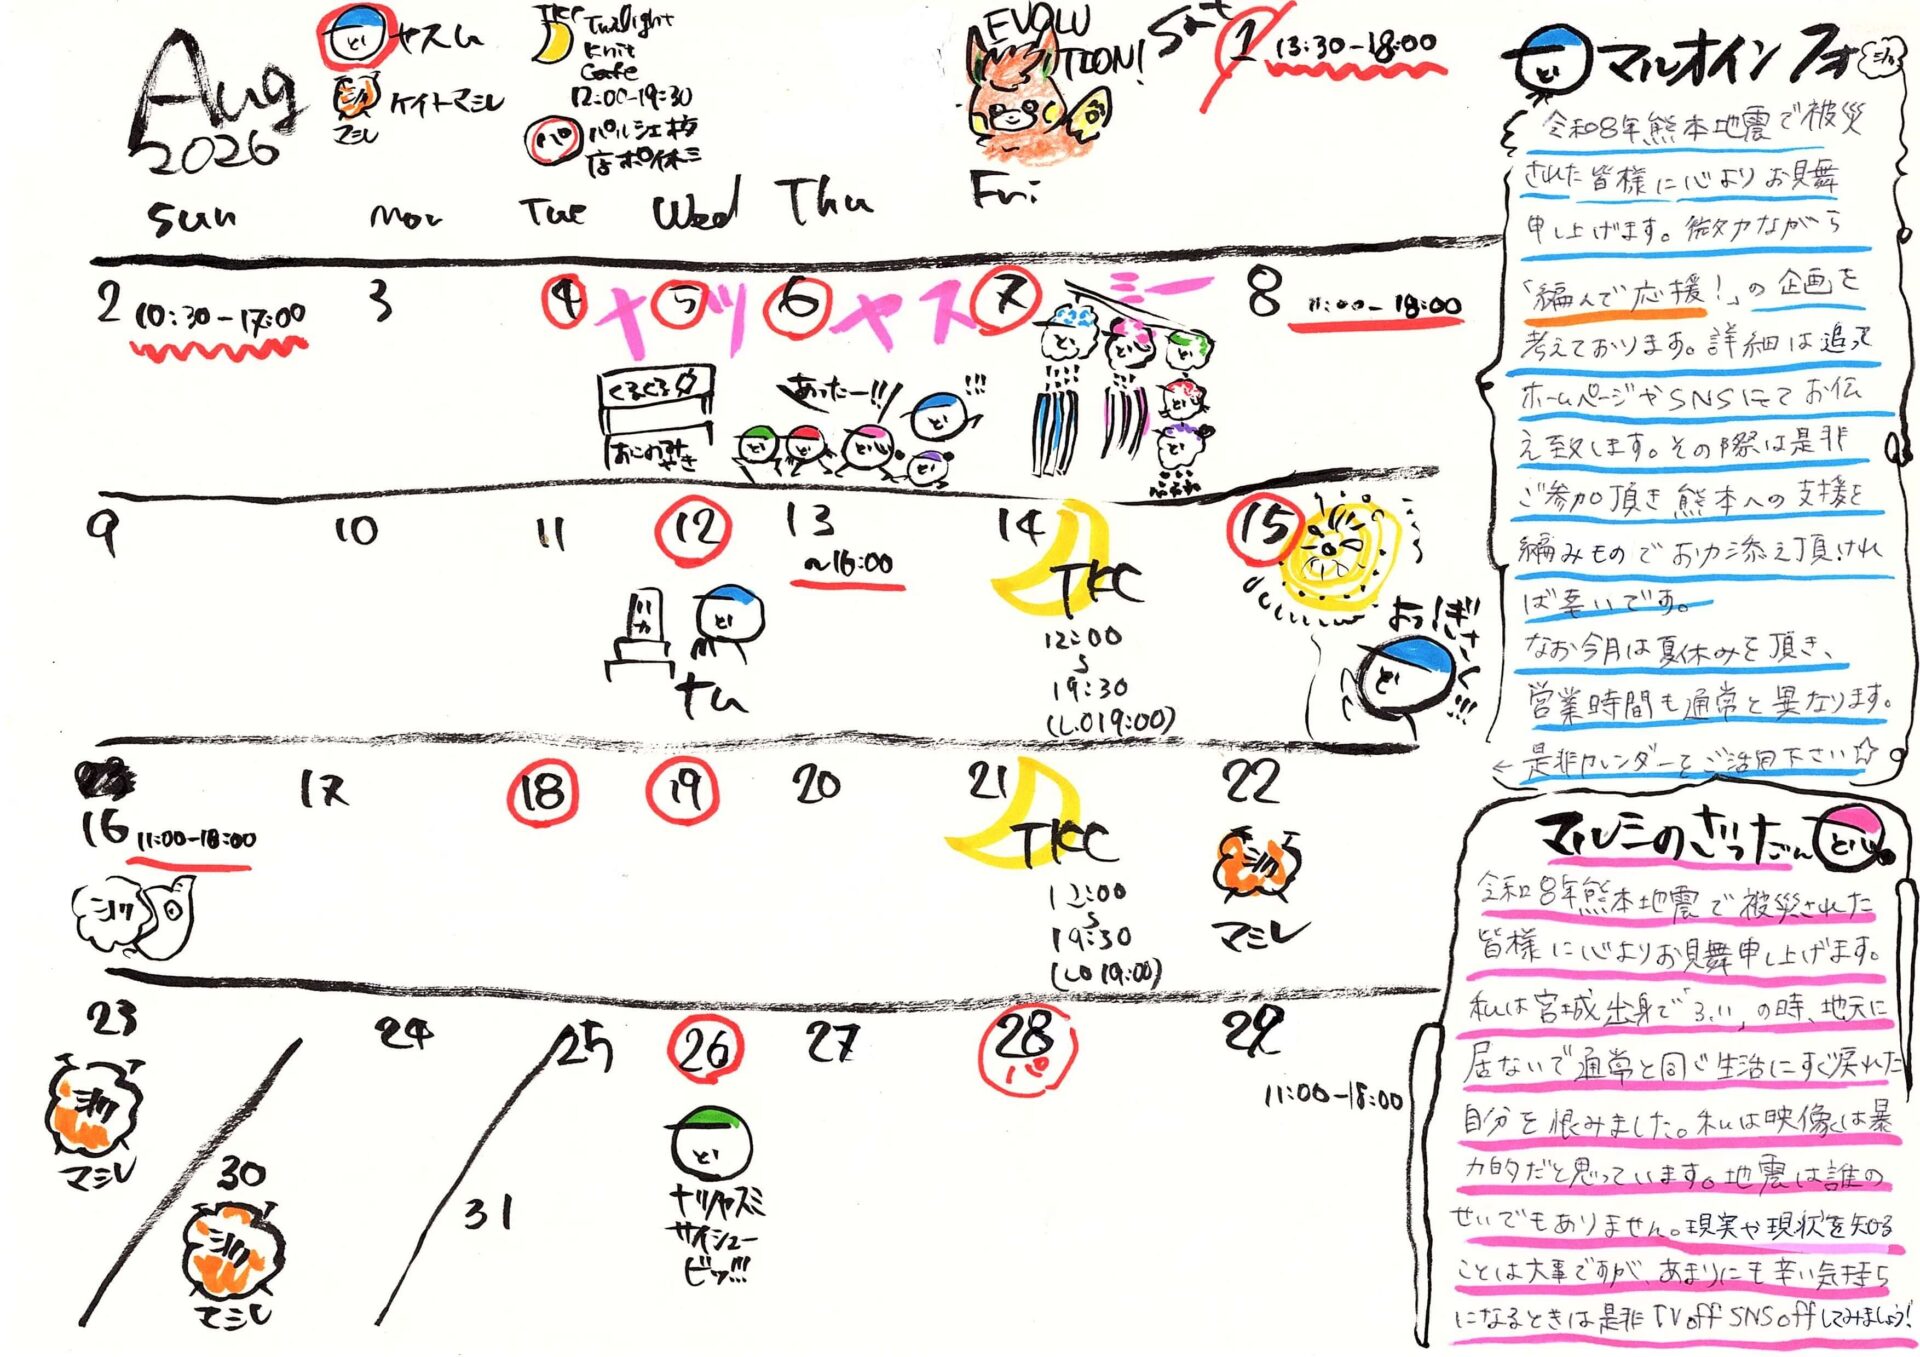 Aug
2026
とい ヤスム
シク ケイトマミレ
マミレ
TKC Twilight
Knit
Cafe
12:00-19:30
パ パルシェ抜
店ポイ休ミ
EVOLU
TION!
Sat
1 13:30-18:00
Sun Mon Tue Wed Thu Fri
2 10:30-17:00
3
4 5 6 7
ナツヤスミー
くるくる
おこのみやき
あったー!!!
8 11:00-18:00
9
10
11
12
ハカ
ナム
13
~16:00
14
TKC
12:00
19:30
(L.O19:00)
15
よっ!ぎさん!!!
16 11:00-18:00
シク
17
18
19
20
21
TKC
12:00
19:30
(LO 19:00)
22
シク
マミレ
23
シク
マミレ
30
シク
マミレ
24
31
25
26
とい
ナツヤスミ
サイシュー
ビッ!!!
27
28
パ
29
11:00-18:00
マルオインフォ
令和8年熊本地震で被災
された皆様に心よりお見舞
申し上げます。微力ながら
「編んで応援!」の企画を
考えております。詳細は追って
ホームページやSNSにてお伝
え致します。その際は是非
ご参加頂き熊本への支援を
編みものでお力添え頂ければ
ば幸いです。
なお今月は夏休みを頂き、
営業時間も通常と異なります。
←是非カレンダーをご活用下さい☆
マルミのざつだん
令和8年熊本地震で被災された
皆様に心よりお見舞申し上げます。
私は宮城出身で「3.11」の時、地元に
居ないで通常と同じ生活にすぐ戻れた
自分を恨みました。私は映像は暴
力的だと思っています。地震は誰の
せいでもありません。現実や現状を知る
ことは大事ですが、あまりにも辛い気持ち
になるときは是非TVoff SNSoffしてみましょう!